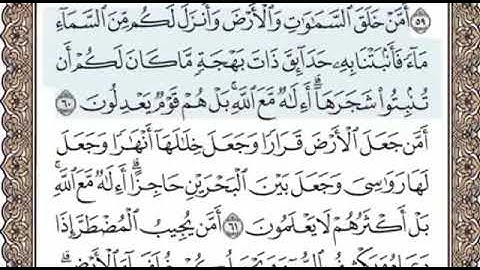 ٥٩ أَمَّنْ خَلَقَ السَّمَٰوَٰتِ وَالْأَرْضَ وَأَنزَلَ لَكُم مِّنَ السَّمَآءِ
مَآءً فَأَنۢبَتْنَا بِهِۦ حَدَآئِقَ ذَاتَ بَهْجَةٍ مَّا كَانَ لَكُمْ أَن
تُنۢبِتُوا۟ شَجَرَهَآ ۗ أَءِلَٰهٌ مَّعَ اللَّهِ ۚ بَلْ هُمْ قَوْمٌ يَعْدِلُونَ ٦٠
أَمَّن جَعَلَ الْأَرْضَ قَرَارًا وَجَعَلَ خِلَٰلَهَآ أَنْهَٰرًا وَجَعَلَ
لَهَا رَوَٰسِىَ وَجَعَلَ بَيْنَ الْبَحْرَيْنِ حَاجِزًا ۗ أَءِلَٰهٌ مَّعَ اللَّهِ ۚ
بَلْ أَكْثَرُهُمْ لَا يَعْلَمُونَ ٦١ أَمَّن يُجِيبُ الْمُضْطَرَّ إِذَا